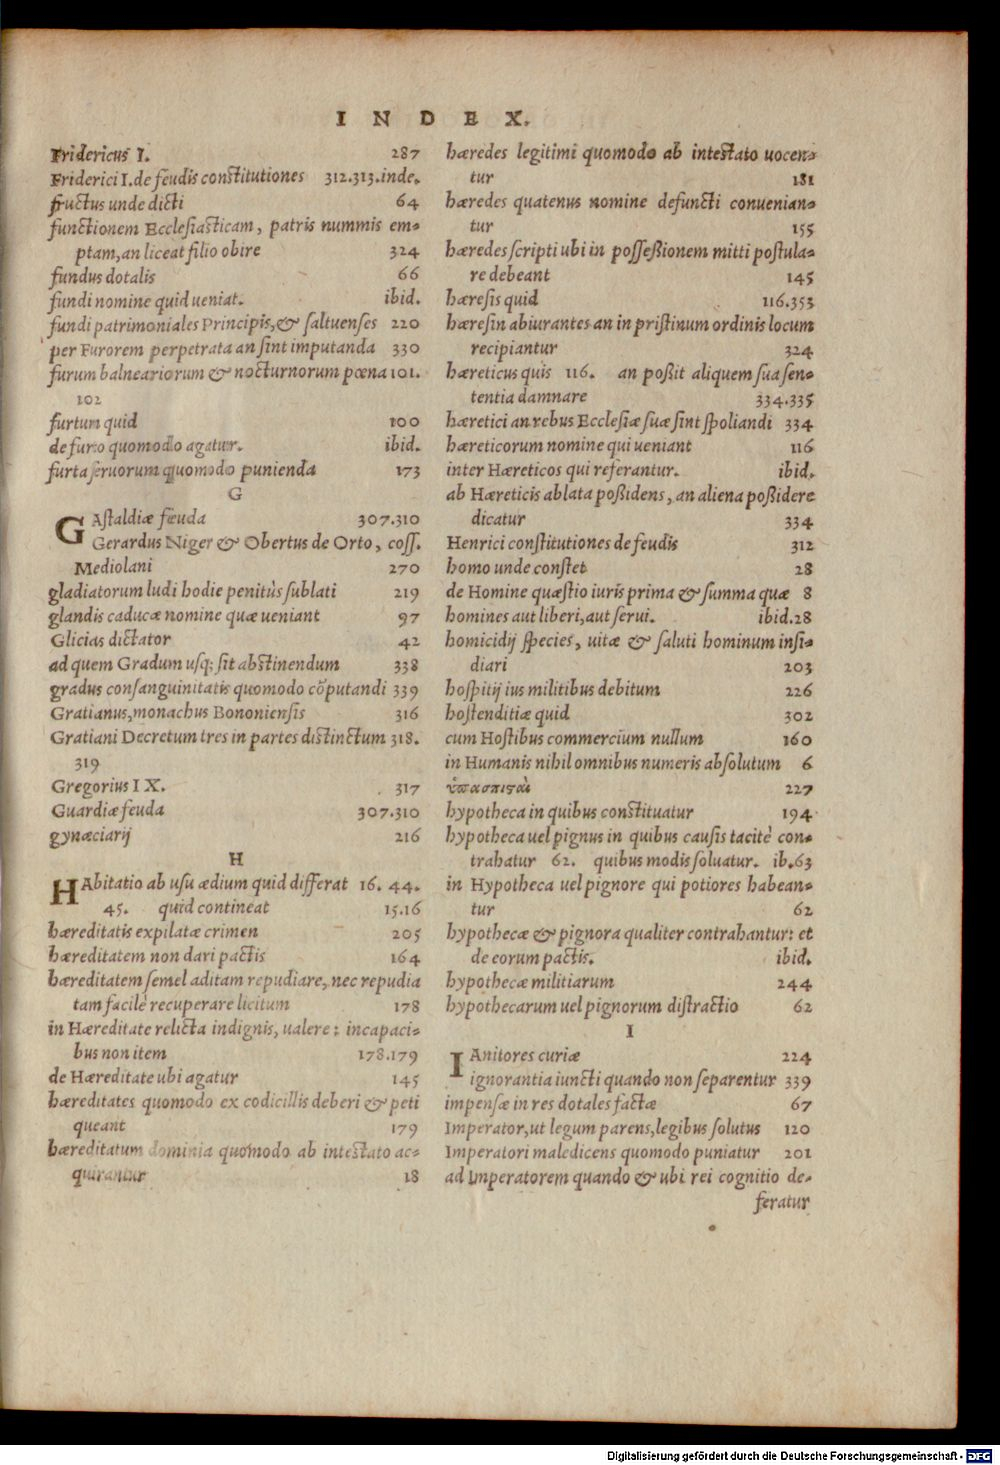 INDEX.
Fridericus I. 287
Friderici I. de feudis constitutiones 312.313.inde.
fructus unde dicti 64
functionem Ecclesiasticam, patris nummis em-
ptam, an liceat filio obire 324
fundus dotalis 66
fundi nomine quid ueniat. ibid.
fundi patrimoniales Principis, & saltuenses 220
per Furorem perpetrata an sint imputanda 330
furum balneariorum & nocturnorum pœna 101.
102
furtum quid 100
de furto quomodo agatur. ibid.
furta seruorum quomodo punienda 173
G
GAstaldiæ feuda 307.310
Gerardus Niger & Obertus de Orto, coss.
Mediolani 270
gladiatorum ludi hodie penitùs sublati 219
glandis caducæ nomine quæ ueniant 97
Glicias dictator 42
ad quem Gradum usq; sit abstinendum 338
gradus consanguinitatis quomodo cõputandi 339
Gratianus, monachus Bononiensis 316
Gratiani Decretum tres in partes distinctum 318.
319
Gregorius IX. 317
Guardiæ feuda 307.310
gynæciarij 216
H
HAbitatio ab usu ædium quid differat 16. 44.
45. quid contineat 15.16
hæreditatis expilatæ crimen 205
hæreditatem non dari pactis 164
hæreditatem semel aditam repudiare, nec repudia
tam facilè recuperare licitum 178
in Hæreditate relicta indignis, ualere: incapaci-
bus non item 178.179
de Hæreditate ubi agatur 145
hæreditates quomodo ex codicillis deberi & peti
queant 179
hæreditatum dominia quomodo ab intestato ac-
quirantur 18
hæredes legitimi quomodo ab intestato uocen-
tur 181
hæredes quatenus nomine defuncti conuenian-
tur 155
hæredes scripti ubi in possessionem mitti postula-
re debeant 145
hæresis quid 116.353
hæresin abiurantes an in pristinum ordinis locum
recipiantur 324
hæreticus quis 116. an possit aliquem sua sen-
tentia damnare 334.335
hæretici an rebus Ecclesiæ suæ sint spoliandi 334
hæreticorum nomine qui ueniant 116
inter Hæreticos qui referantur. ibid.
ab Hæreticis ablata possidens, an aliena possidere
dicatur 334
Henrici constitutiones de feudis 312
homo unde constet 28
de Homine quæstio iuris prima & summa quæ 8
homines aut liberi, aut serui. ibid.28
homicidij species, uitæ & saluti hominum insi-
diari 203
hospitij ius militibus debitum 226
hostenditiæ quid 302
cum Hostibus commercium nullum 160
in Humanis nihil omnibus numeris absolutum 6
ὑπασπισταὶ 227
hypotheca in quibus constituatur 194
hypotheca uel pignus in quibus causis tacitè con-
trahatur 62. quibus modis soluatur. ib.63
in Hypotheca uel pignore qui potiores habean-
tur 62
hypothecæ & pignora qualiter contrahantur: et
de eorum pactis. ibid.
hypothecæ militiarum 244
hypothecarum uel pignorum distractio 62
I
IAnitores curiæ 224
ignorantia iuncti quando non separentur 339
impensæ in res dotales factæ 67
Imperator, ut legum parens, legibus solutus 120
Imperatori maledicens quomodo puniatur 201
ad Imperatorem quando & ubi rei cognitio de-
feratur
Digitalisierung gefördert durch die Deutsche Forschungsgemeinschaft - DFG